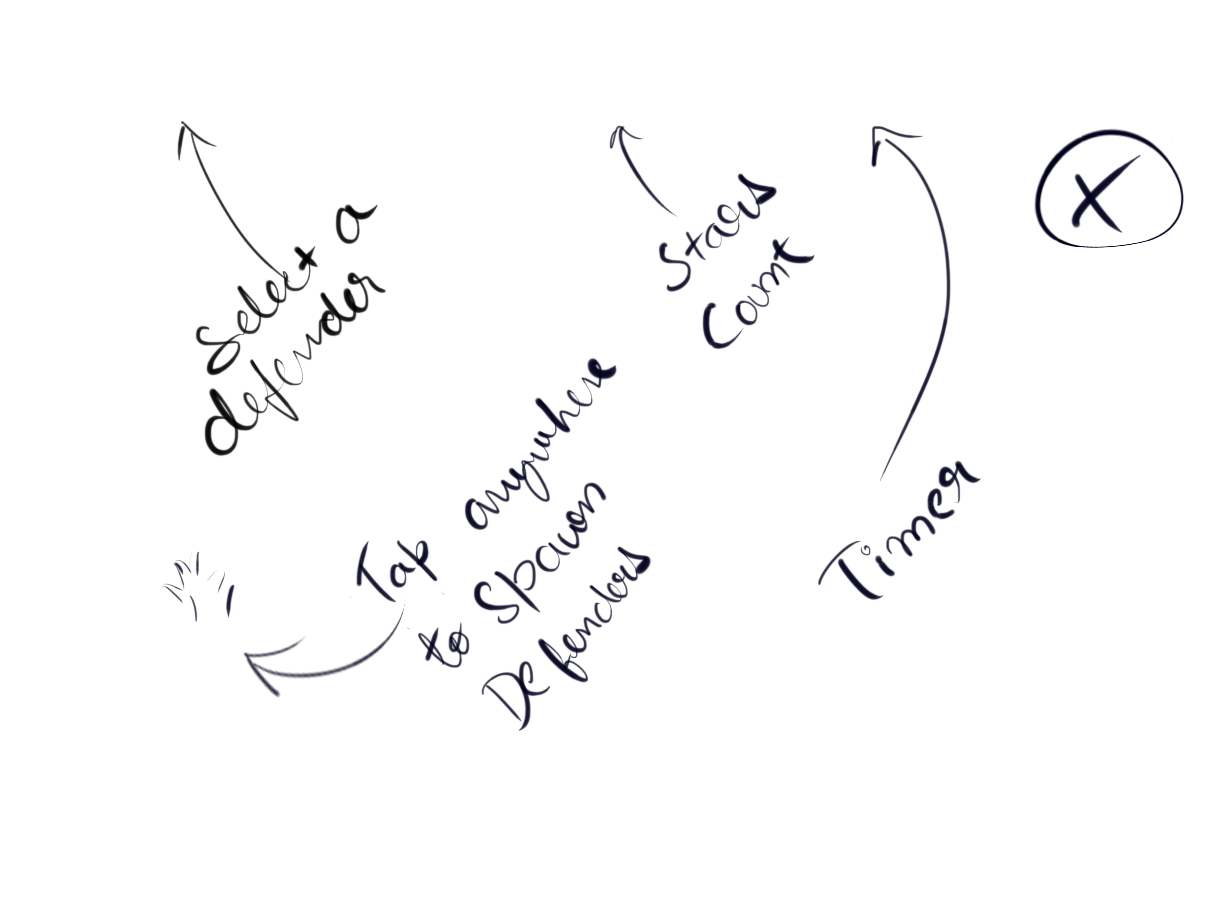 Select a
defender
Stars
Count
X
Tap anywhere
to Spawn
Defenders
Timer